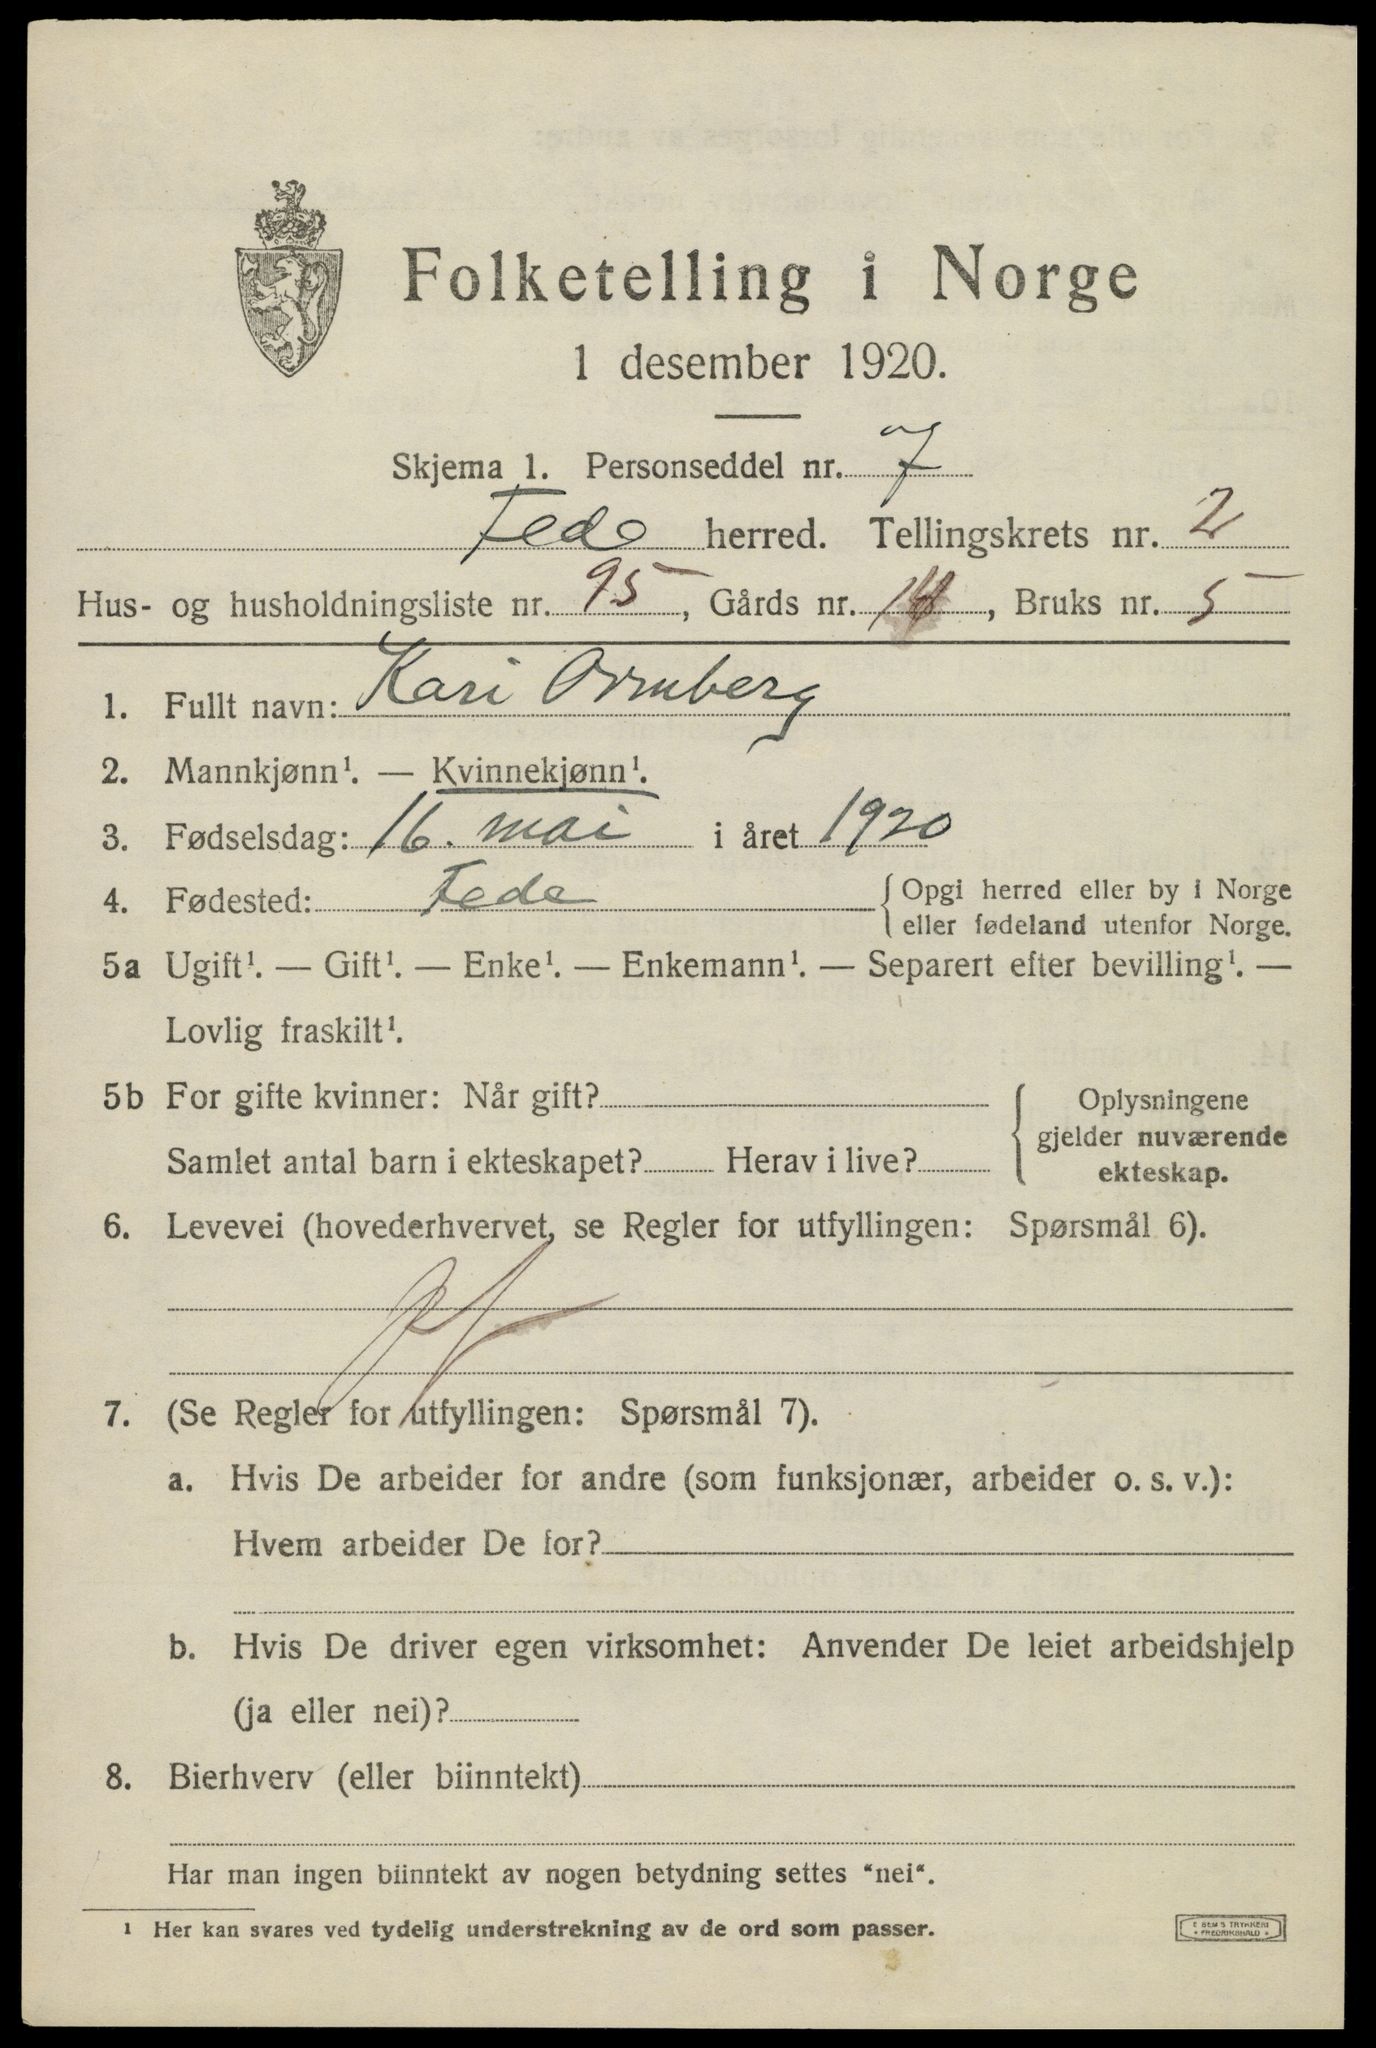 Folketelling i Norge
1 desember 1920.
Skjema 1. Personseddel nr. 7
Fede herred. Tellingskrets nr. 2
Hus- og husholdningsliste nr. 95, Gårds nr. 14, Bruks nr. 5
1. Fullt navn: Kari Ormberg
2. Mannkjønn¹. — Kvinnekjønn¹.
3. Fødselsdag: 16. mai i året 1920
4. Fødested: Fede { Opgi herred eller by i Norge
eller fødeland utenfor Norge.
5a Ugift¹. — Gift¹. — Enke¹. — Enkemann¹. — Separert efter bevilling¹. —
Lovlig fraskilt¹.
5b For gifte kvinner: Når gift? { Oplysningene
gjelder nuværende
Samlet antal barn i ekteskapet? Herav i live?
ekteskap.
6. Levevei (hovederhvervet, se Regler for utfyllingen: Spørsmål 6).
7. (Se Regler for utfyllingen: Spørsmål 7).
a. Hvis De arbeider for andre (som funksjonær, arbeider o. s. v.):
Hvem arbeider De for?
b. Hvis De driver egen virksomhet: Anvender De leiet arbeidshjelp
(ja eller nei)?
8. Bierhverv (eller biinntekt)
Har man ingen biinntekt av nogen betydning settes "nei".
¹ Her kan svares ved tydelig understrekning av de ord som passer.
E SEM'S TRYKKERI
FREDRIKSHALD